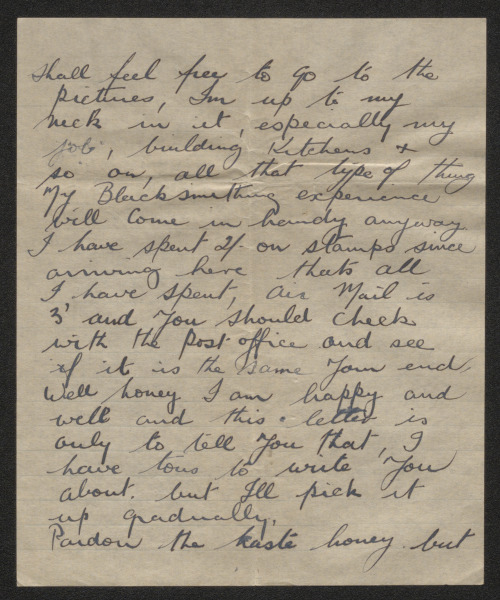 shall feel free to go to the
pictures, I'm up to my
neck in it, especially my
job, building Kitchens +
so on, all that type of thing
My Blacksmithing experience
will come in handy anyway
I have spent 2/- on stamps since
arriving here thats all
I have spent, Air Mail is
3d and You should check
with the Post office and see
if it is the same Your end,
Well honey I am happy and
well and this letter is
only to tell You that, I
have tons to write You
about. but I'll pick it
up gradually.
Pardon the haste honey but